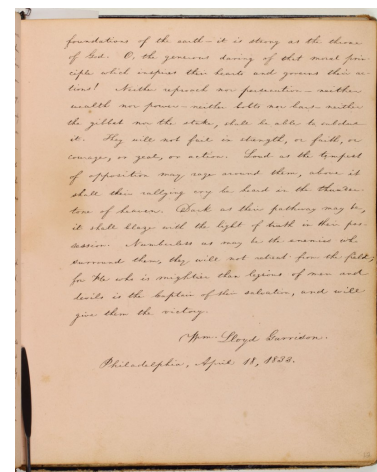 foundations of the earth – it is strong as the throne
of God. O, the generous daring of that moral prin-
ciple which inspires their hearts and governs their ac-
tions! Neither reproach nor persecution – neither
wealth nor power – neither bolts nor bars – neither
the gibbet nor the stake, shall be able to subdue
it. They will not fail in strength, or faith, or
courage, or zeal, or action. Loud as the tempest
of opposition may rage around them, above it
shall their rallying cry be heard in the thunder-
tone of heaven. Dark as their pathway may be,
it shall blaze with the light of truth in their pos-
session. Numberless as may be the enemies who
surround them, they will not retreat from the field;
for He who is mightier than legions of men and
devils is the Captain of their salvation, and will
give them the victory.
Wm. Lloyd Garrison.
Philadelphia, April 18, 1833.